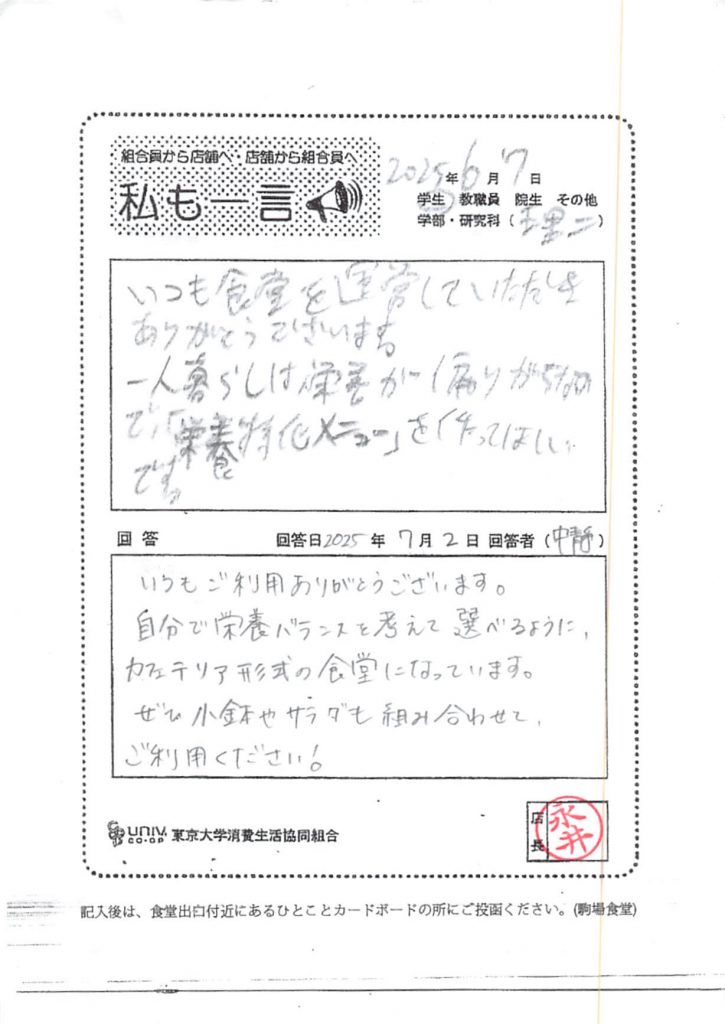 組合員から店舗へ・店舗から組合員へ
私も一言
2025年6月7日
学生 教職員 院生 その他
学部・研究科（理二）
いつも食堂を運営していただき
ありがとうございます。
一人暮らしは栄養が偏りがちなの
で、「栄養特化メニュー」を作ってほしい
です。
回答 回答日2025年7月2日 回答者（中静）
いつもご利用ありがとうございます。
自分で栄養バランスを考えて選べるように、
カフェテリア形式の食堂になっています。
ぜひ小鉢やサラダも組み合わせて、
ご利用ください！
UNIV. CO-OP 東京大学消費生活協同組合
店長 永井
記入後は、食堂出口付近にあるひとことカードボードの所にご投函ください。(駒場食堂)